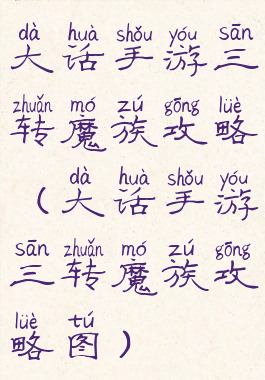 dà huà shǒu yóu sān
大话手游三
zhuǎn mó zú gōng lüè
转魔族攻略
dà huà shǒu yóu
（大话手游
sān zhuǎn mó zú gōng
三转魔族攻
lüè tú
略图）